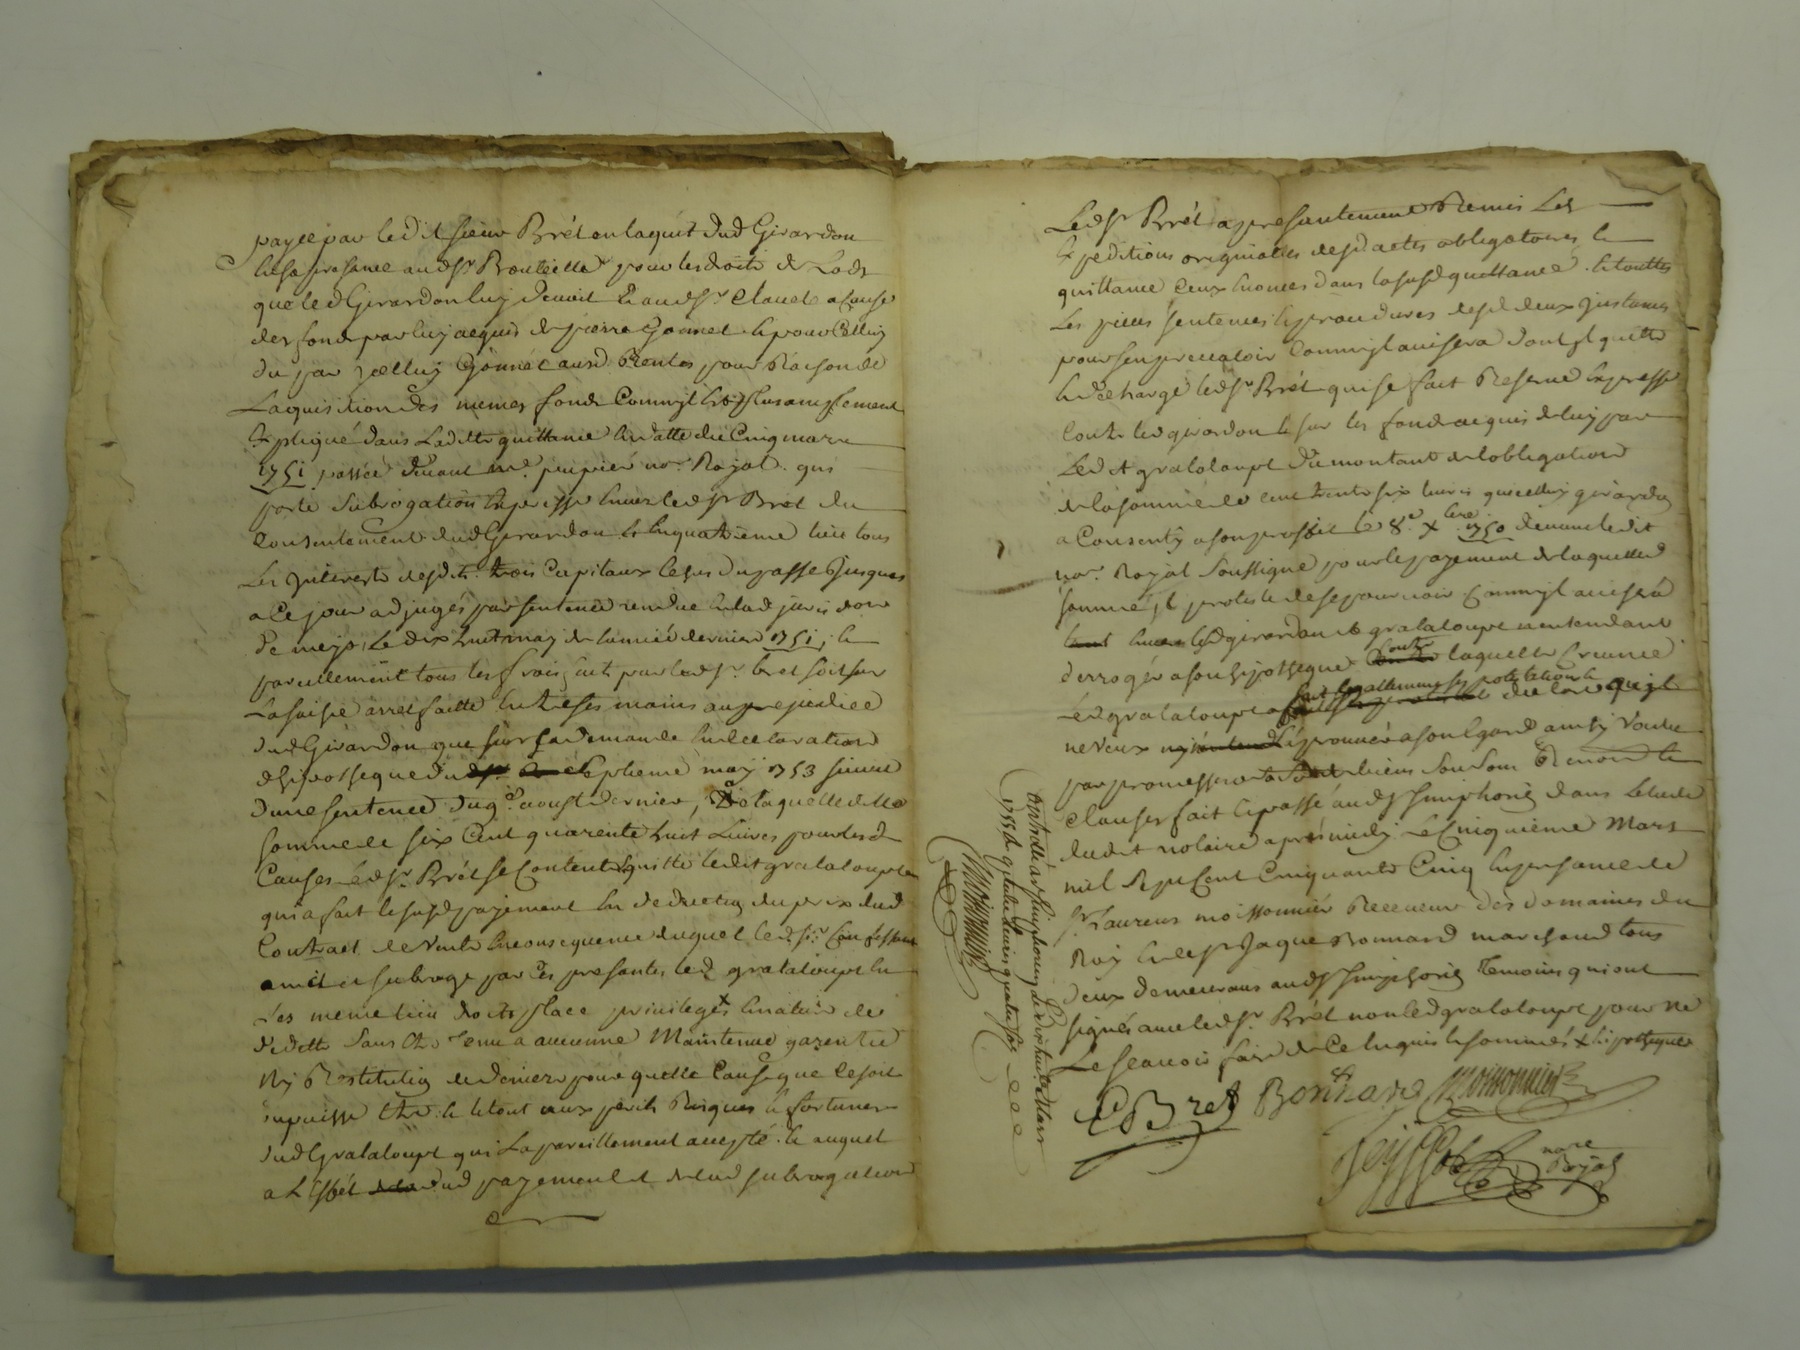 payée par ledit sieur Brét en laquit dud Girardon
en sa presance aud sr. Bouteille pour les droits de Lods
que led Girardon luy devoit & aud sr. Claude a cause
des fonds par luy acquis de pierre Gonnet. & pour celluy
du par icelluy Gonnét aux d. Rentes pour Raison de
Laquisition des memes fonds Comm'il est plus amplement
Expliqué dans Ladette quittance en datte du Cinq mars
1751 passée devant me. no.re Royal. qui
porte Subrogation Expresse envers led sr Bret du
Consentement dud Girardon & enquatrieme lieu tous
Les Interests desdits. trois Capitaux le jus du passe Jusques
a Ce jour adjugés par sentence rendue en lad jurisdion
de le dix huit may de lannée derniere 1751, &
pareillement tous les frais faits par led sr. bret soit sur
La saisie arrét faitte entre ses mains au prejudice
dud Girardon que sur sa demande en declaration
dhipotheque du septieme may 1753 suivie
dune sentence du 9e aoust dernier, De laquelle ditte
somme de six Cent quarente huit Livres pour lesd
Causes led sr. Brét se Contente & quitte ledit grataloupt
qui a fait le susd payement en deduction du prix dud
Contract de vente en consequence duquel led sr. Confessant
a mis et subroge par Ces presantes led grataloupt en
Les meme lieu droits place privileges + en nature de
dedette sans Etre tenu a aucunne Maintenue garentie
Ny Restitution de deniers pour quelle Cause que Ce soit
ou puisse Etre & le tout aux perils Risques & fortunes
dud Grataloupt qui La pareillement accepté. & auquel
a L'effét dud payement et de lad subrogation
Led sr Brét a presantement Remis Les
Expeditions originalles desd actes obligatoires &
quittance Ceux Enoncés dans la susd quittance. & touttes
Les pieces sentences & procedures desd deux Instances
pour s'en prevaloir Comm'il avisera dont il quitte
& decharge led sr Brét qui se fait Reserve Expresse
Contre led girardon & sur les fonds acquis de luy par
Ledit grataloupt du montant de lobligation
de la somme de Cent trente six livres que celluy girardon
a Consenty a son proffit le 8e. Xbre 1750 devant ledit
no.re Royal Soussigné pour le payement de laquelle
somme il proteste de se pourvoir Comm'il avisera
envers led girardon & grataloupt n'entendant
derroger a son hipotheque Contre laquelle Creance
Led grataloupt a fait protestation
ne veux a son Egard ainsy voulu
par promesse biens Soumis Renonce &
Clauses fait & passé aud st Simphorien dans Letude
dudit notaire aprés midy Le Cinquieme Mars
mil Sept Cent Cinquante Cinq En presance de
sr. Laurens moissonnier Receveur des domaines du
Roy & de sr Jaque Bonnard marchand tous
deux demeurans aud st Simphorien Temoins qui ont
signés avec led sr. Brét non led grataloupt pour ne
Le scavoir faire de Ce enquis & sommés + hipotheques
C Bret Bonnard Moissonnier
nore
Royal
Controllé a st Simphorien le dix huit Mars
1755
Moissonnier